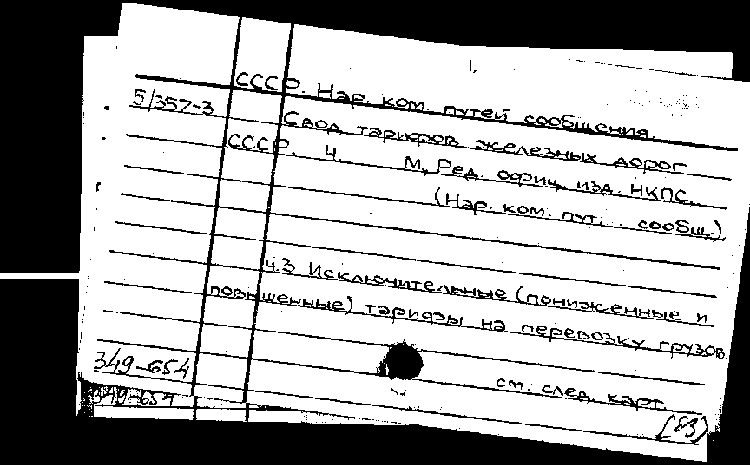 СССР. Нар. ком. путей сообщения.
5/357-3
Свод тарифов железных дорог
СССР. Ч. М., Ред. офиц. изд. НКПС.
(Нар. ком. пут. сообщ.)
ч.3 Исключительные (пониженные и
повышенные) тарифы на перевозку грузов
349-654
см. след. карт.
[83]
349-654